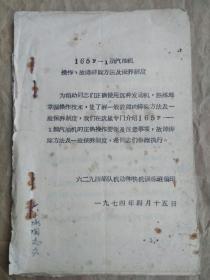 165F－1型汽油机
操作、故障排除方法及保养制度
为帮助同志们正确使用这种发动机，熟练地
掌握操作技术，处了解一般故障的排除方法及一
般保养制度，我们在这里专门介绍165F－
1型汽油机的正确操作要领及注意事项，故障排
除方法及一般保养制度，望同志们参照执行。
六二九团部队机动伙机训练班编印
一九七四年四月十五日